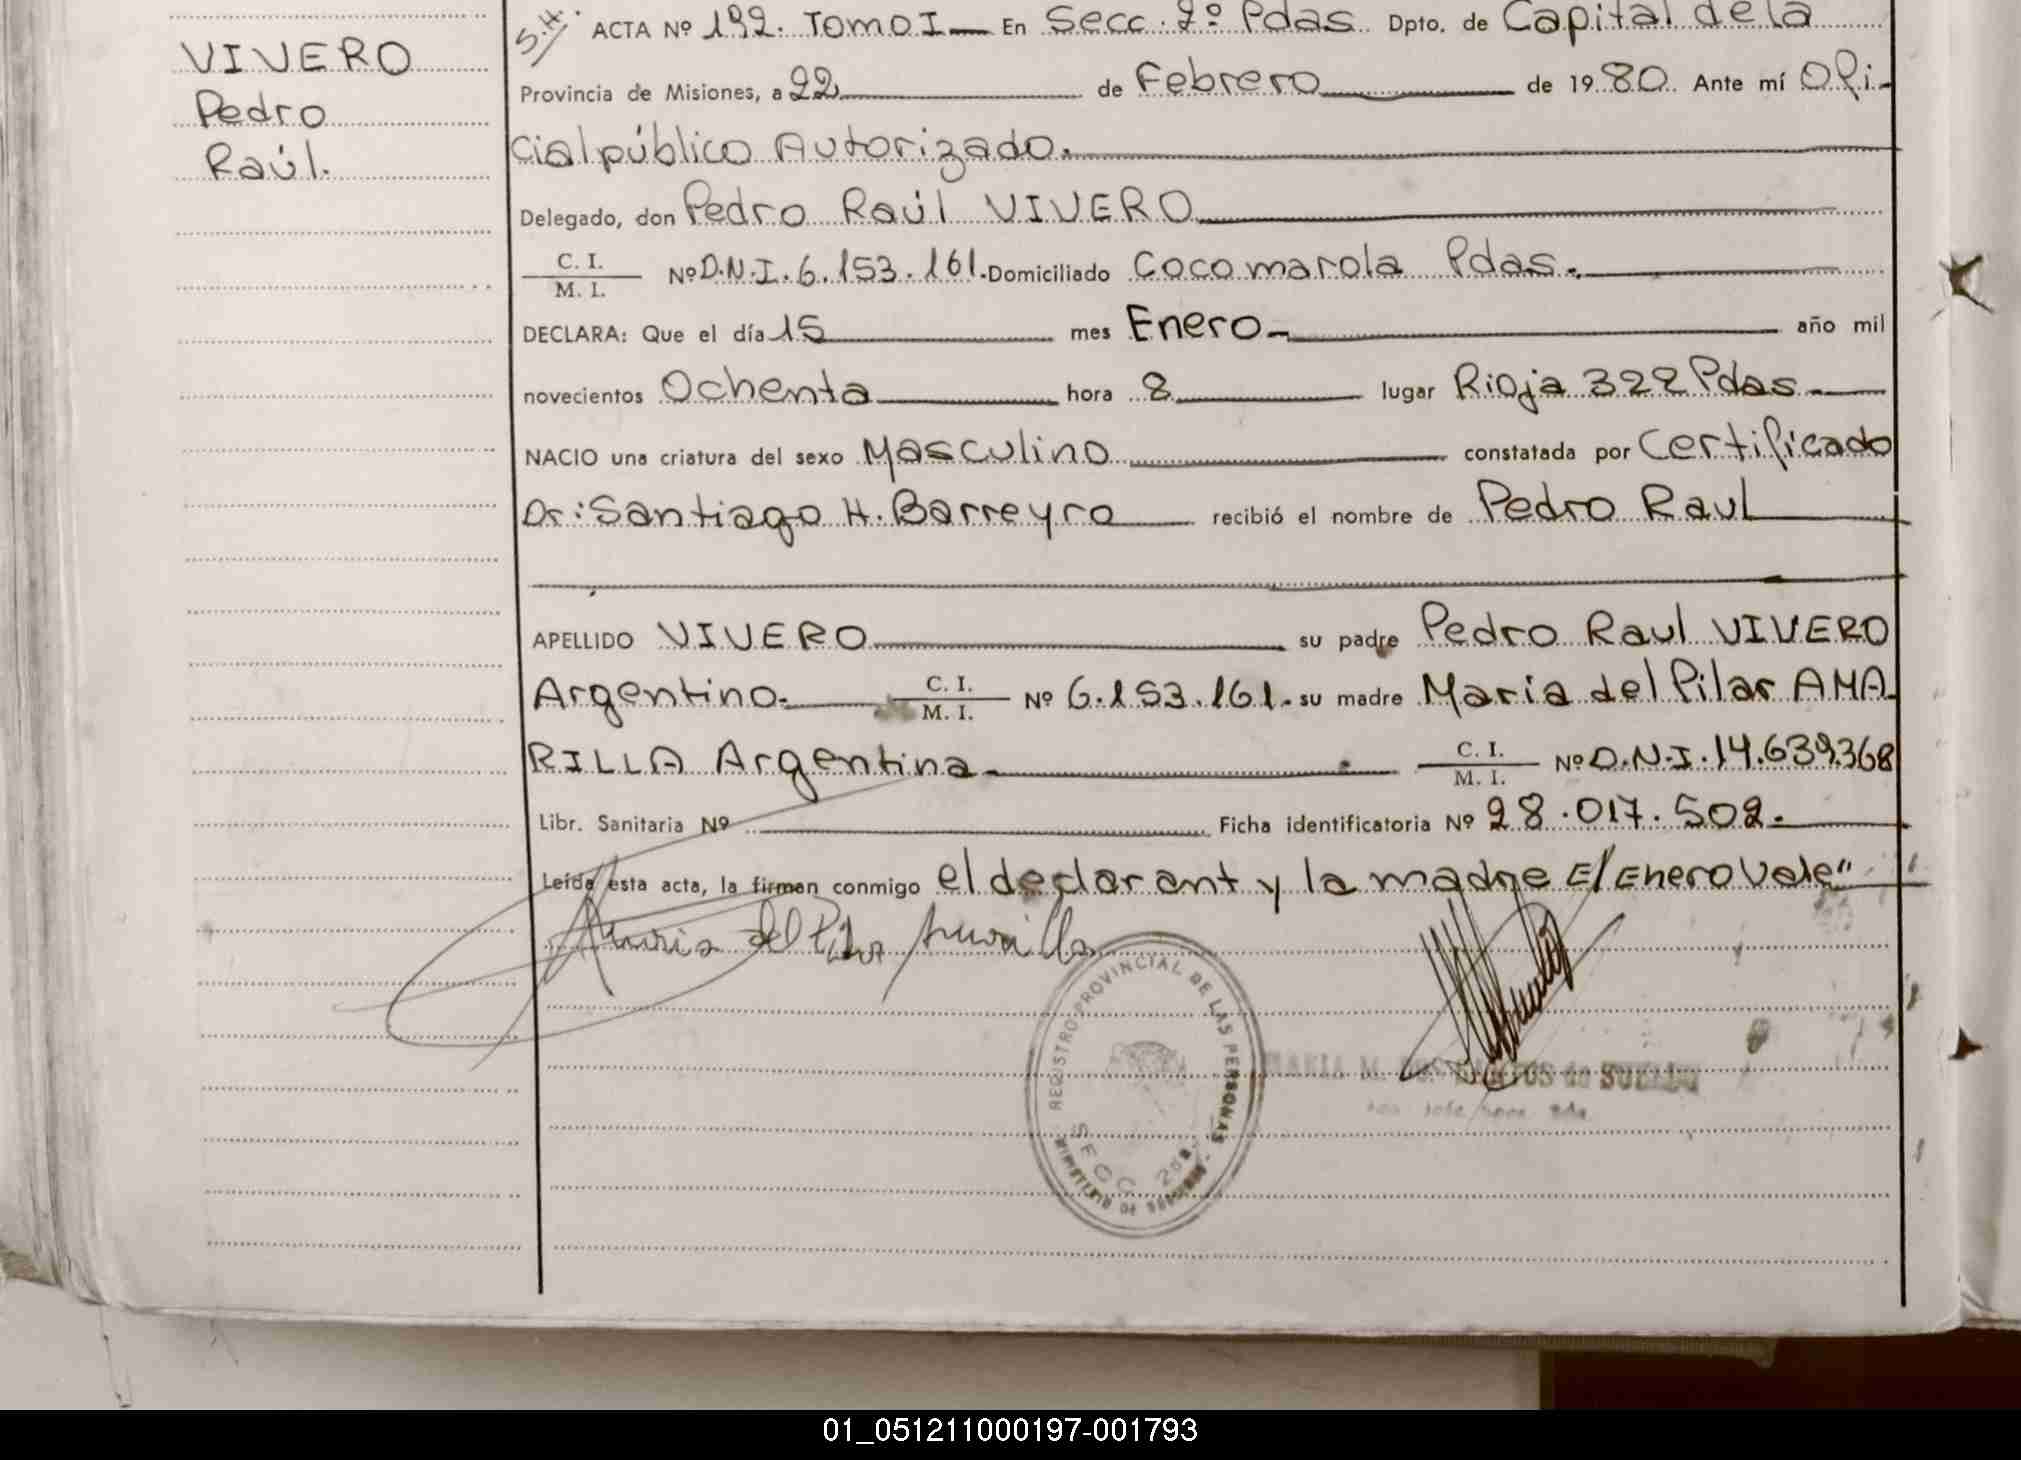 VIVERO
Pedro
Raúl.
S.H.
ACTA Nº 192. Tomo I — En Secc. 2º Pdas. Dpto. de Capital de la
Provincia de Misiones, a 22 de Febrero de 1980. Ante mí Ofi-
cial público Autorizado.
Delegado, don Pedro Raúl VIVERO
C. I.
M. I. Nº D.N.I. 6.153.161. Domiciliado Cocomarola Pdas.
DECLARA: Que el día 15 mes Enero año mil
novecientos Ochenta hora 8 lugar Rioja 322 Pdas.
NACIO una criatura del sexo Masculino constatada por Certificado
Dr: Santiago H. Barreyro recibió el nombre de Pedro Raul
APELLIDO VIVERO su padre Pedro Raul VIVERO
Argentino. C. I.
M. I. Nº 6.153.161. su madre María del Pilar AMA-
RILLA Argentina. C. I.
M. I. Nº D.N.I. 14.639.368
Libr. Sanitaria Nº Ficha identificatoria Nº 28.017.502.
Leída esta acta, la firman conmigo el declarant y la madre E/ Enero Vale"
Maria del Pilar Amarilla
REGISTRO PROVINCIAL DE LAS PERSONAS
SECC 2da.
MARIA M. de
01_051211000197-001793